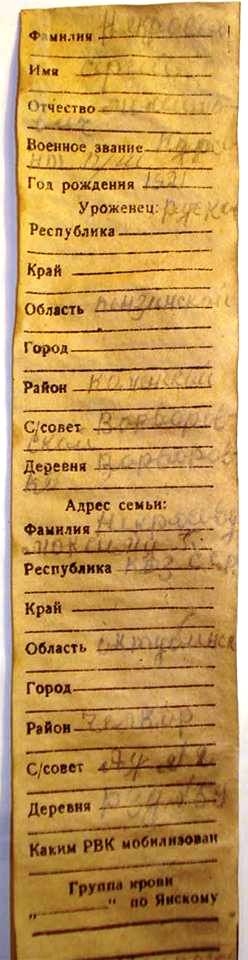 Фамилия Некрасов
Имя
Отчество
Военное звание Курса
нт
Год рождения 1921
Уроженец:
Республика
Край
Область Пензинской
Город
Район Каменской
С/совет Варваров
ской
Деревня Варваров
ки
Адрес семьи:
Фамилия Некрасову
максиму
Республика Каз ССР
Край
Область актюбинск
Город
Район Челкар
С/совет
Деревня
Каким РВК мобилизован
Группа крови
„ “ по Янскому